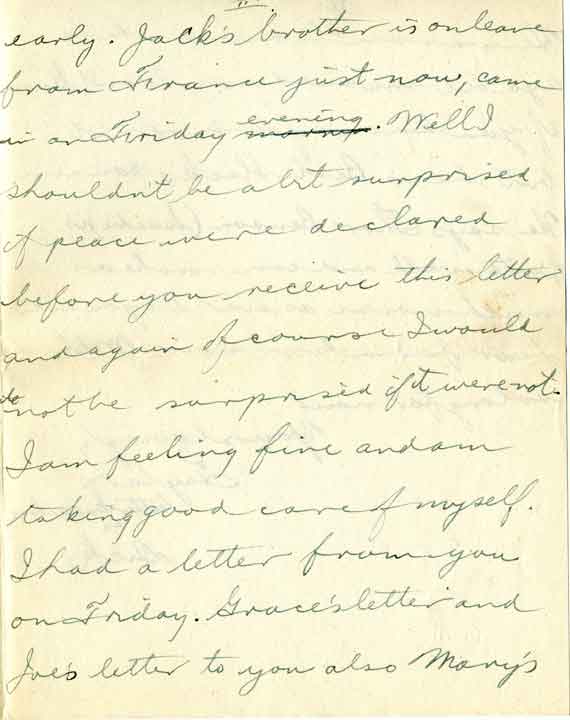 11.
early. Jack's brother is on leave
from France just now, came
in on Friday evening. Well I
shouldn't be a bit surprised
if peace were declared
before you receive this letter
and again of course I would
not be surprised if it were not.
I am feeling fine and am
taking good care of myself.
I had a letter from you
on Friday. Grace's letter and
Joe's letter to you also Mary's